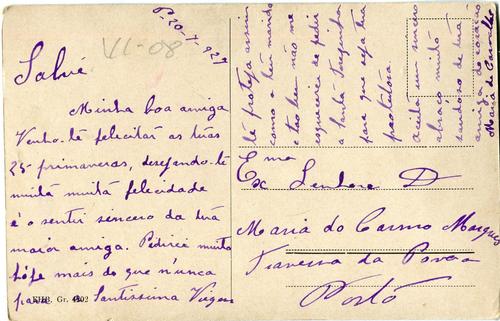 P-20-7-927
VI-08
Salvé
Minha boa amiga
Venho-te felicitar as tuas
25 primaveras, desejando-te
muita muita felicidade
é o sentir sencero da tua
maior amiga. Pedirei muito
hoje mais do que n'unca
para a Santissima Virgem
te proteja assim
como a teu marido
e tao bem não me
esquecerei de pedir
a Santa Teresinha
para que seja tua
protetora
Aceita um sencero
abraço muito
saudoso de tua
amiga do coração
Maria de Carvalho
Exma
Ex Senhora D
Maria do Carmo Marques
Travessa da Povoa
Porto
Gr. 4202